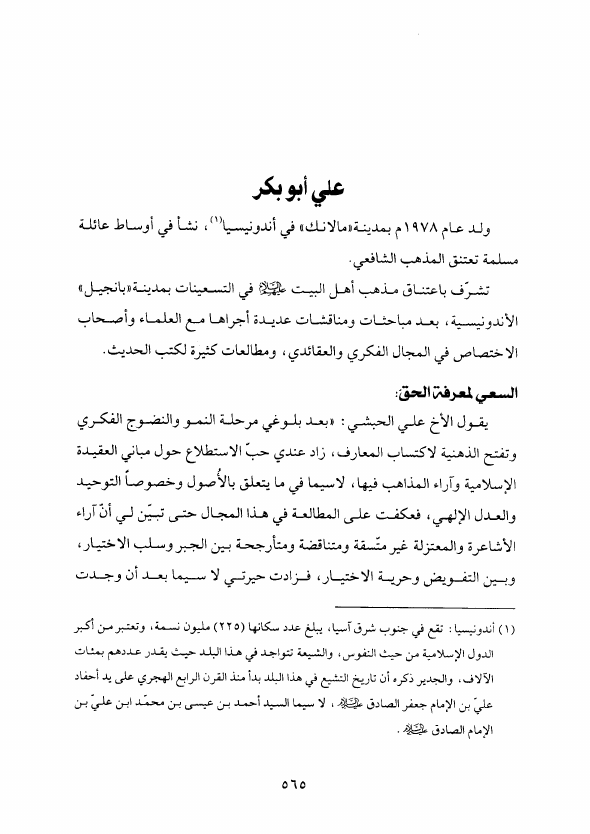 علي أبو بكر
ولد عام ١٩٧٨م بمدينة «مالانك» في أندونيسيا(١)، نشأ في أوساط عائلة
مسلمة تعتنق المذهب الشافعي.
تشرّف باعتناق مذهب أهل البيت عليهم السلام في التسعينات بمدينة «بانجيل»
الأندونيسية، بعد مباحثات ومناقشات عديدة أجراها مع العلماء وأصحاب
الاختصاص في المجال الفكري والعقائدي، ومطالعات كثيرة لكتب الحديث.
السعي لمعرفة الحق:
يقول الأخ علي الحبشي: «بعد بلوغي مرحلة النمو والنضوج الفكري
وتفتح الذهنية لاكتساب المعارف، زاد عندي حبّ الاستطلاع حول مباني العقيدة
الإسلامية وآراء المذاهب فيها، لاسيما في ما يتعلق بالأُصول وخصوصاً التوحيد
والعدل الإلهي، فعكفت على المطالعة في هذا المجال حتى تبيّن لي أنّ آراء
الأشاعرة والمعتزلة غير متّسقة ومتناقضة ومتأرجحة بين الجبر وسلب الاختيار،
وبين التفويض وحرية الاختيار، فزادت حيرتي لا سيما بعد أن وجدت
(١) أندونيسيا: تقع في جنوب شرق آسيا، يبلغ عدد سكانها (٢٢٥) مليون نسمة، وتعتبر من أكبر
الدول الإسلامية من حيث النفوس، والشيعة تتواجد في هذا البلد حيث يقدر عددهم بمئات
الآلاف، والجدير ذكره أن تاريخ التشيع في هذا البلد بدأ منذ القرن الرابع الهجري على يد أحفاد
عليّ بن الإمام جعفر الصادق عليه السلام، لا سيما السيد أحمد بن عيسى بن محمّد ابن عليّ بن
الإمام الصادق عليه السلام.
٥٦٥